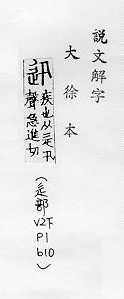 說文解字
大徐本
迅
疾也从辵卂
聲息進切
(辵部
V2下
P1
b10)